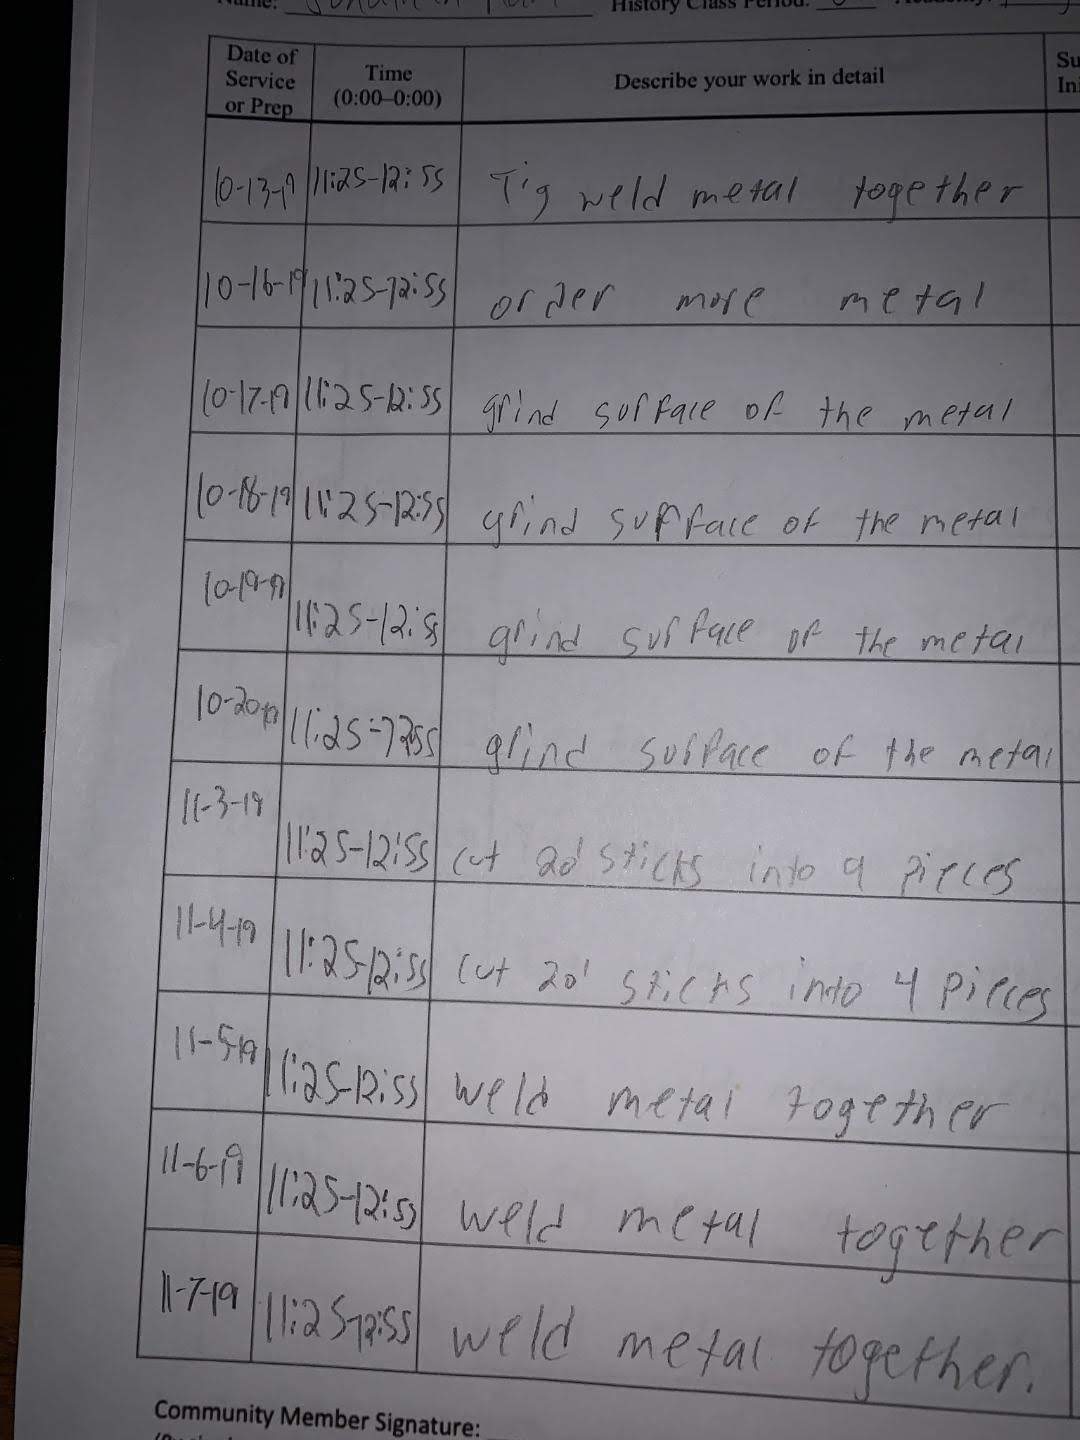 Name:
History Class Period:
Date of Service or Prep Time (0:00–0:00) Describe your work in detail Su
In
10-13-19 11:25-12:55 Tig weld metal together
10-16-19 11:25-12:55 order more metal
10-17-19 11:25-12:55 grind surface of the metal
10-18-19 11:25-12:55 grind surface of the metal
10-19-19 11:25-12:55 grind surface of the metal
10-20-19 11:25-12:55 grind surface of the metal
11-3-19 11:25-12:55 cut 20' sticks into 9 pieces
11-4-19 11:25-12:55 cut 20' sticks into 4 pieces
11-5-19 11:25-12:55 weld metal together
11-6-19 11:25-12:55 weld metal together
11-7-19 11:25-12:55 weld metal together.
Community Member Signature: